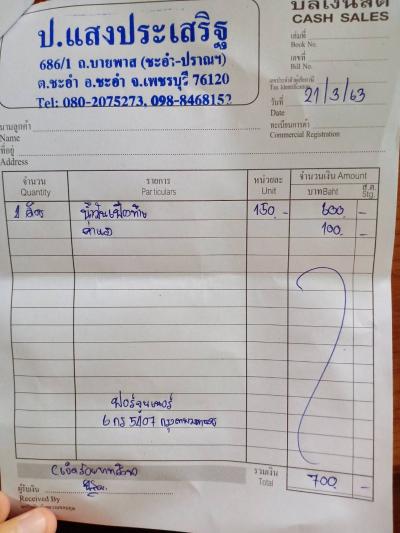 บิลเงินสด
CASH SALES
ป.แสงประเสริฐ
686/1 ถ.บายพาส (ชะอำ-ปราณฯ)
ต.ชะอำ อ.ชะอำ จ.เพชรบุรี 76120
Tel: 080-2075273, 098-8468152
เล่มที่
Book No.
เลขที่
Bill No.
เลขประจำตัวผู้เสียภาษี
Tax Identification
วันที่ 21/3/63
Date
นามลูกค้า
Name
ทะเบียนการค้า
Commercial Registration
ที่อยู่
Address
จำนวน รายการ หน่วยละ จำนวนเงิน Amount
Quantity Particulars Unit บาทBaht ส.ต. Stg.
150.- 600. -
100. -
ฟอร์จูนเนอร์
6 กร 5407 กรุงเทพมหานคร
(เจ็ดร้อยบาทถ้วน) รวมเงิน
Total 700. -
ผู้รับเงิน
Received By